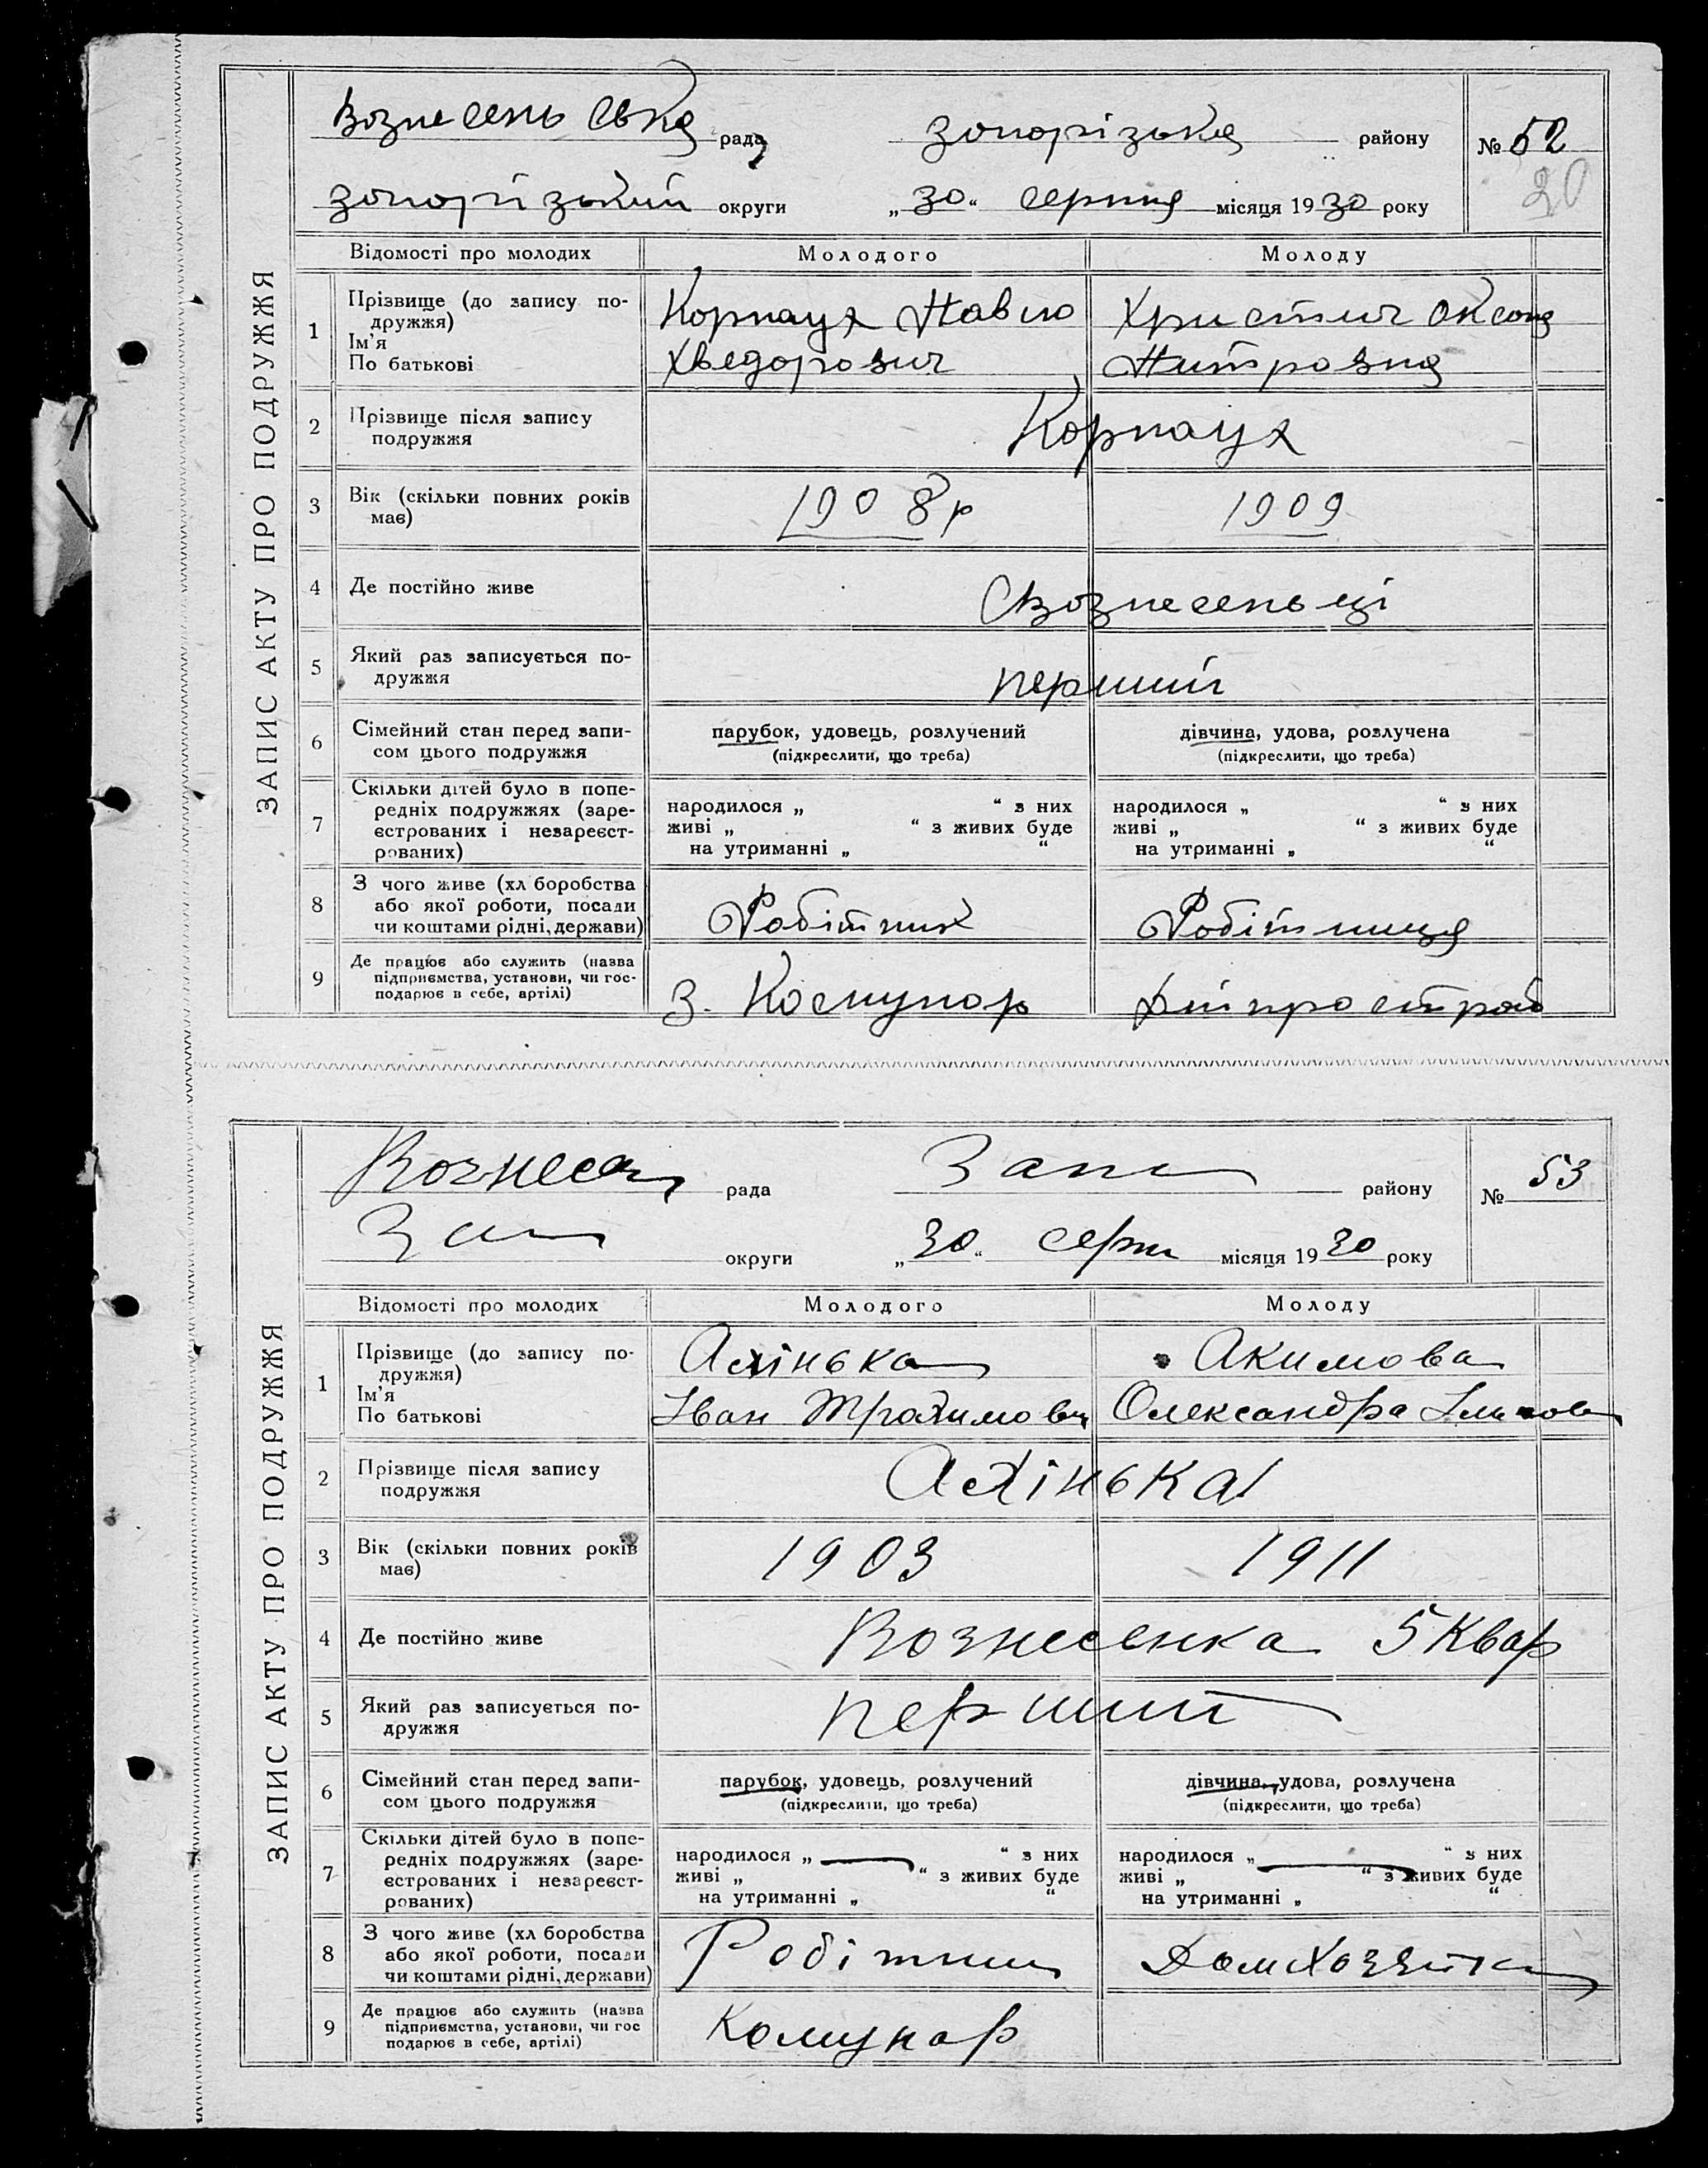 ЗАПИС АКТУ ПРО ПОДРУЖЖЯ
Вознесеньська рада зопорізька району № 52
20
зопорізький округи „30“ серпня місяця 1930 року
Відомості про молодих Молодого Молоду
1 Прізвище (до запису по-
дружжя)
Ім'я
По батькові
Корнаух Павло
Хведорович
Христич Оксана
Питровна
2 Прізвище після запису
подружжя
Корнаух
3 Вік (скільки повних років
має)
1908р 1909
4 Де постійно живе
Свознесеньці
5 Який раз записується по-
дружжя
перший
6 Сімейний стан перед запи-
сом цього подружжя
парубок, удовець, розлучений
(підкреслити, що треба)
дівчина, удова, розлучена
(підкреслити, що треба)
7 Скільки дітей було в попе-
редніх подружжях (заре-
єстрованих і незареєст-
рованих)
народилося „ “ з них
живі „ “ з живих буде
на утриманні „ “
народилося „ “ з них
живі „ “ з живих буде
на утриманні „ “
8 З чого живе (хл боробства
або якої роботи, посади
чи коштами рідні, держави)
Робітник Робітниця
9 Де працює або служить (назва
підприємства, установи, чи гос-
подарює в себе, артілі)
З. Комунар Дніпрострой
ЗАПИС АКТУ ПРО ПОДРУЖЖЯ
Вознесен рада Запо району № 53
Зап округи „30“ серпн місяця 1930 року
Відомості про молодих Молодого Молоду
1 Прізвище (до запису по-
дружжя)
Ім'я
По батькові
Алінька
Іван Трохимович
Акимова
Олександра
2 Прізвище після запису
подружжя
Алінька
3 Вік (скільки повних років
має)
1903 1911
4 Де постійно живе
Вознесенка 5 Квар
5 Який раз записується по-
дружжя
перший
6 Сімейний стан перед запи-
сом цього подружжя
парубок, удовець, розлучений
(підкреслити, що треба)
дівчина, удова, розлучена
(підкреслити, що треба)
7 Скільки дітей було в попе-
редніх подружжях (заре-
єстрованих і незареєст-
рованих)
народилося „ “ з них
живі „ “ з живих буде
на утриманні „ “
народилося „ “ з них
живі „ “ з живих буде
на утриманні „ “
8 З чого живе (хл боробства
або якої роботи, посади
чи коштами рідні, держави)
Робітник Домхозяйка
9 Де працює або служить (назва
підприємства, установи, чи гос
подарює в себе, артілі)
Комунар